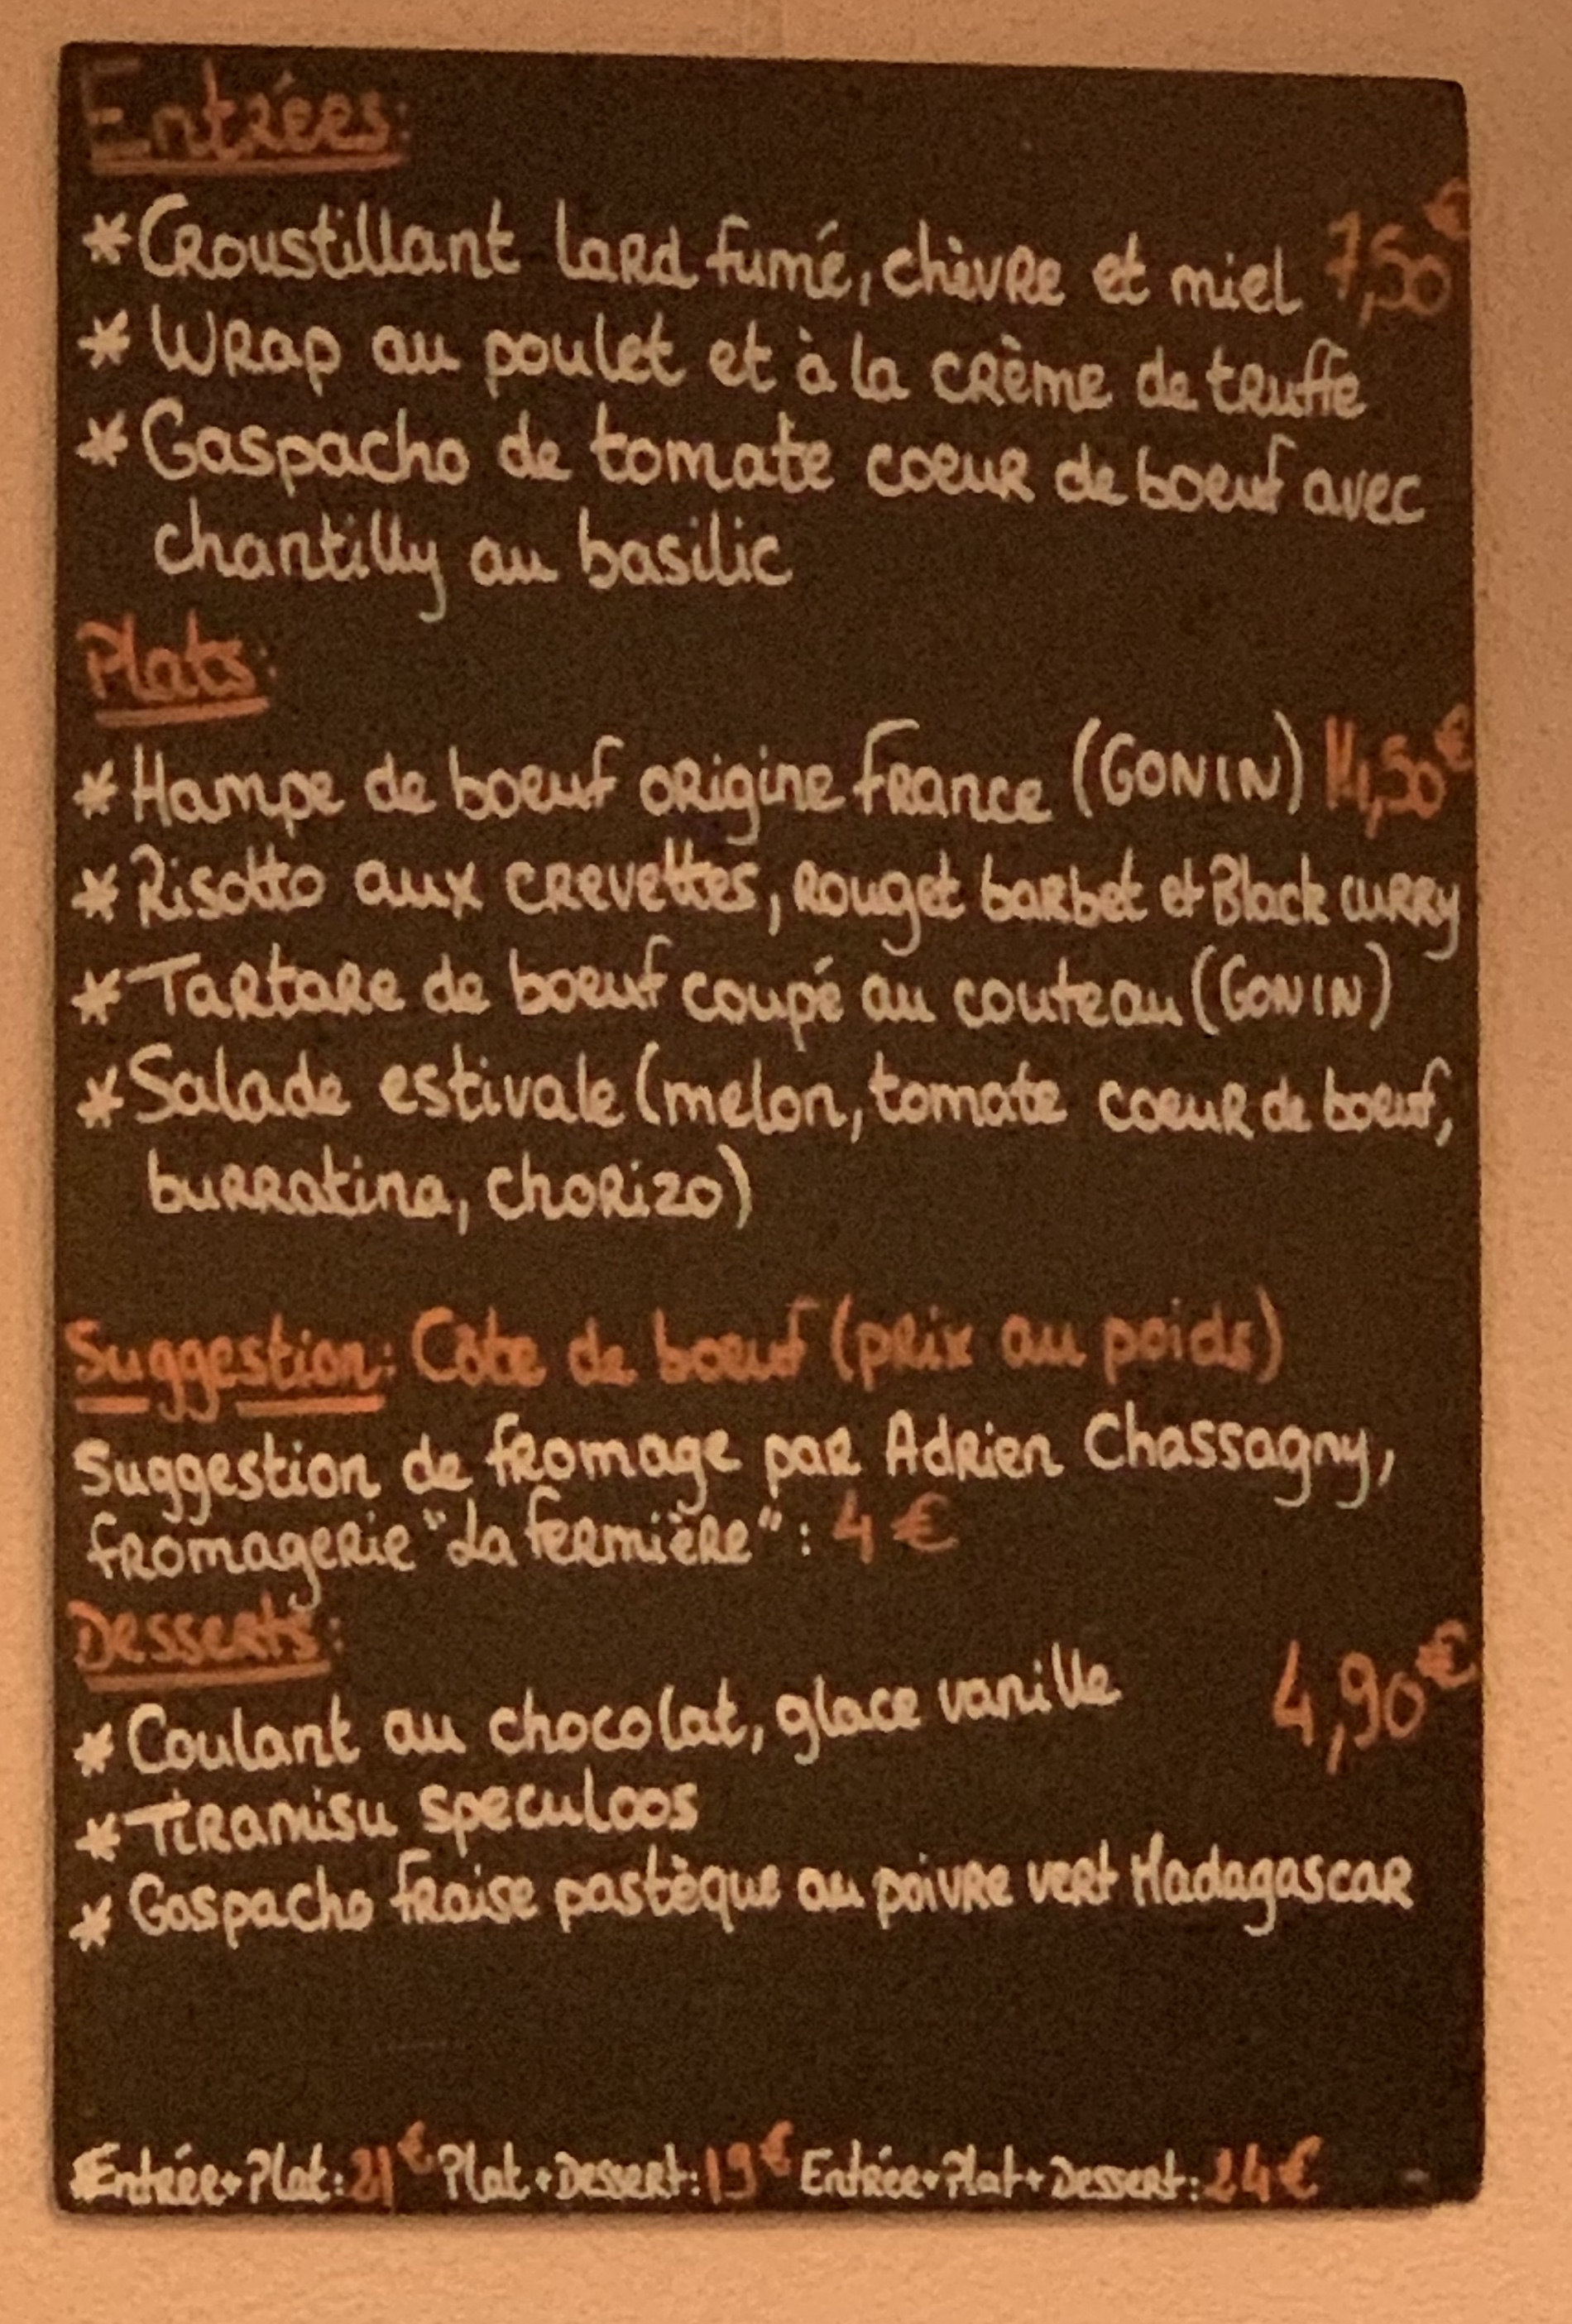 Entrées:
*Croustillant lard fumé, chèvre et miel 7,50€
* Wrap au poulet et à la crème de truffe
* Gaspacho de tomate coeur de boeuf avec
chantilly au basilic
Plats:
* Hampe de boeuf origine France (GONIN) 14,50€
* Risotto aux crevettes, rouget barbet et Black curry
* Tartare de boeuf coupé au couteau (GONIN)
* Salade estivale (melon, tomate coeur de boeuf,
burratina, chorizo)
Suggestion: Côte de boeuf (prix au poids)
Suggestion de fromage par Adrien Chassagny,
fromagerie "La fermière" : 4 €
Desserts:
* Coulant au chocolat, glace vanille 4,90€
* Tiramisu speculoos
* Gaspacho fraise pastèque au poivre vert Madagascar
*Entrée+Plat: 21€ Plat+Dessert: 19€ Entrée+Plat+Dessert: 24€